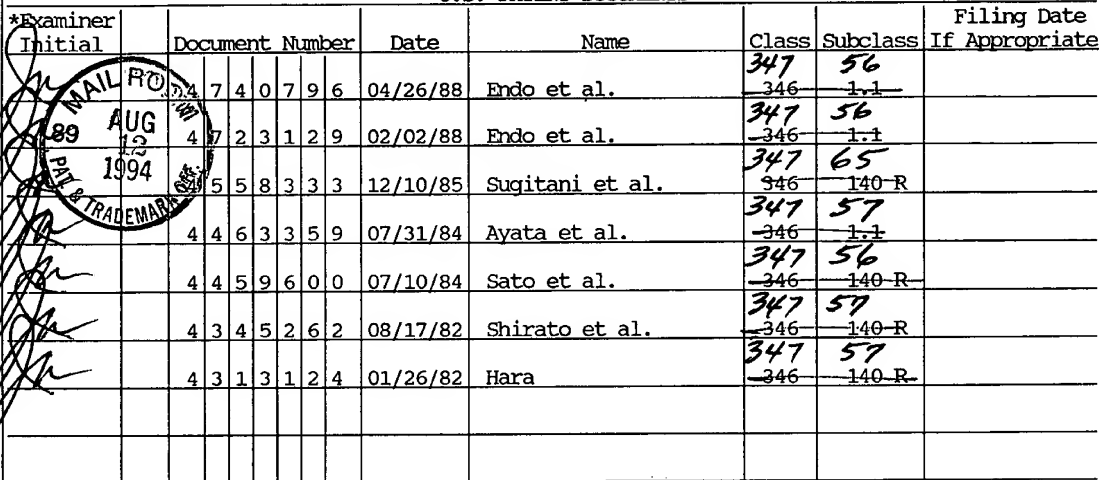 *Examiner Initial Document Number Date Name Class Subclass Filing Date If Appropriate
347 56
4740796 04/26/88 Endo et al. 346 1.1
347 56
4723129 02/02/88 Endo et al. 346 1.1
347 65
4558333 12/10/85 Sugitani et al. 346 140 R
347 57
4463359 07/31/84 Ayata et al. 346 1.1
347 56
4459600 07/10/84 Sato et al. 346 140 R
347 57
4345262 08/17/82 Shirato et al. 346 140 R
347 57
4313124 01/26/82 Hara 346 140 R
MAIL ROOM
89 AUG
12
1994
PAT. & TRADEMARK OFF.